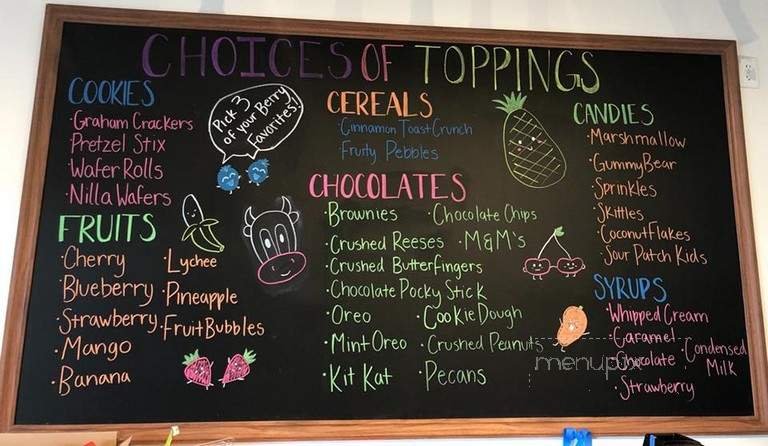 CHOICES OF TOPPINGS
COOKIES
·Graham Crackers
·Pretzel Stix
·Wafer Rolls
·Nilla Wafers
Pick 3
of your Berry
Favorites!
FRUITS
·Cherry
·Blueberry
·Strawberry
·Mango
·Banana
·Lychee
·Pineapple
·Fruit Bubbles
CEREALS
·Cinnamon Toast Crunch
·Fruity Pebbles
CHOCOLATES
·Brownies
·Crushed Reeses
·Crushed Butterfingers
·Chocolate Pocky Stick
·Oreo
·Mint Oreo
·Kit Kat
·Chocolate Chips
·M&M's
·Cookie Dough
·Crushed Peanuts
·Pecans
CANDIES
·Marshmallow
·Gummy Bear
·Sprinkles
·Skittles
·Coconut Flakes
·Sour Patch Kids
SYRUPS
·Whipped Cream
·Caramel
·Chocolate
·Strawberry
·Condensed
Milk
menupix